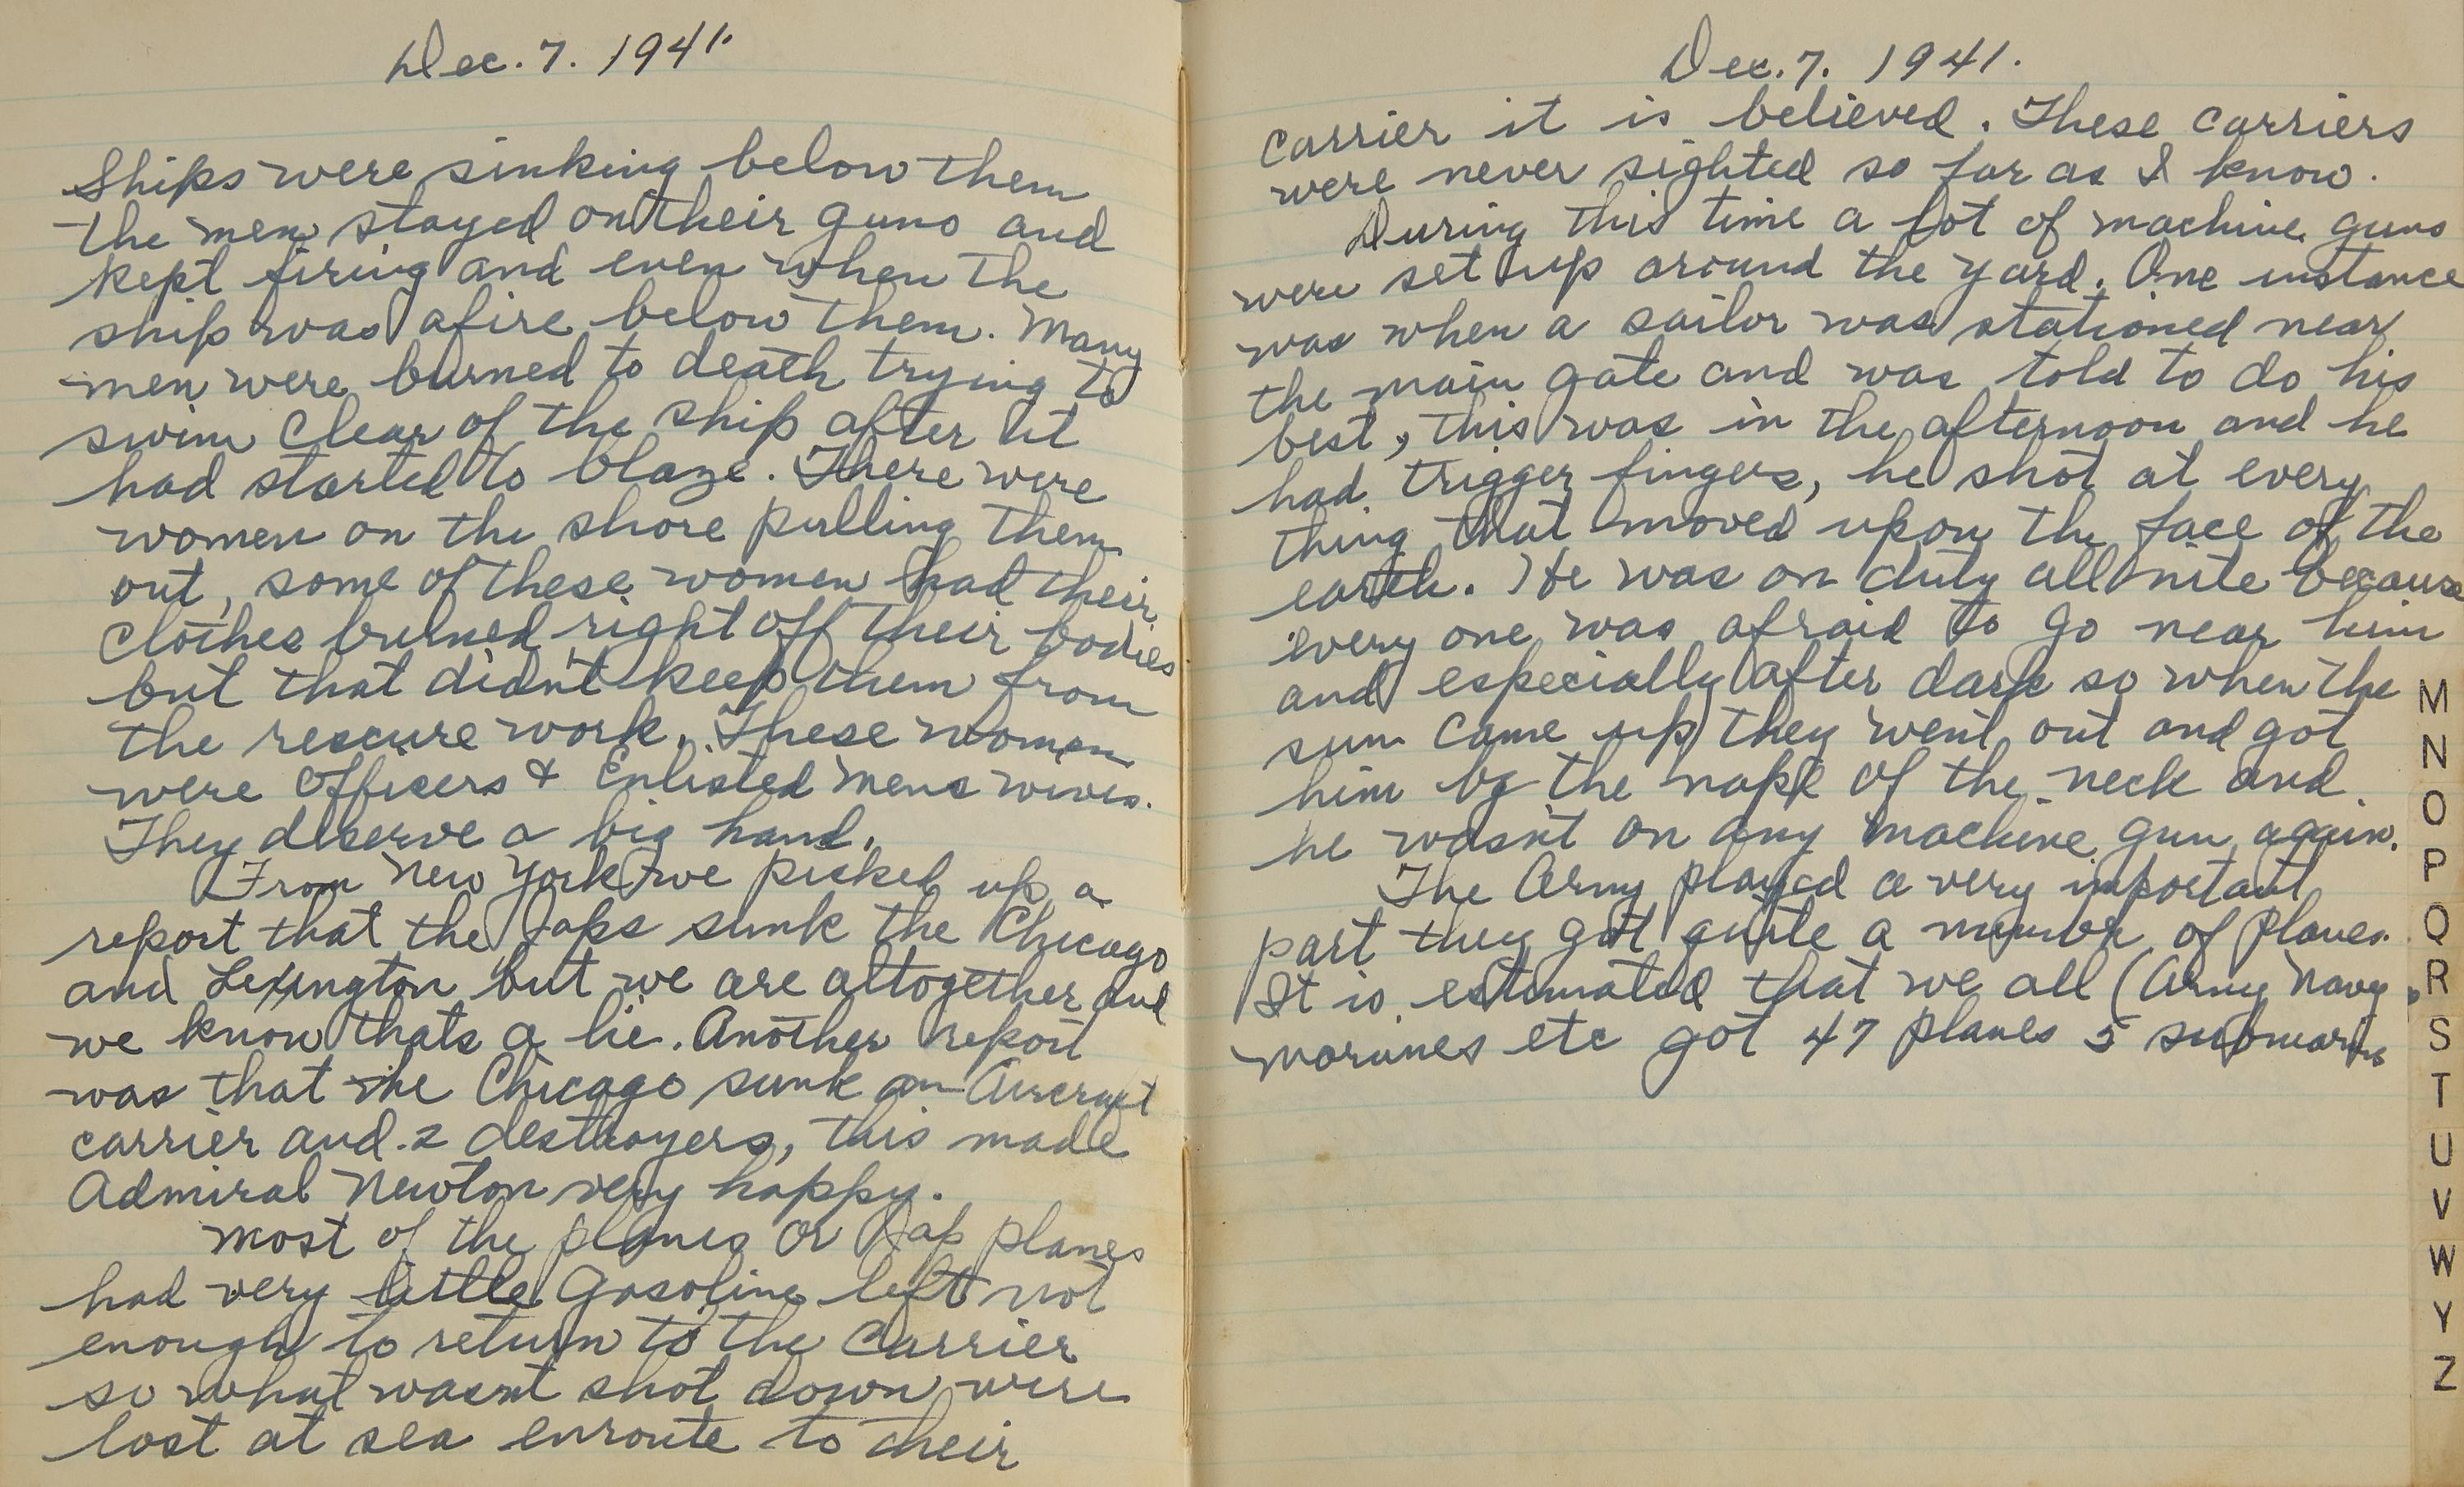 Dec. 7. 1941.
Ships were sinking below them
the men stayed on their guns and
kept firing and even when the
ship was afire below them. Many
men were burned to death trying to
swim clear of the ship after it
had started to blaze. There were
women on the shore pulling them
out, some of these women had their
clothes burned right off their bodies
but that didn't keep them from
the rescure work. These women
were Officers & Enlisted mens wives.
They deserve a big hand.
From New York we picked up a
report that the Japs sunk the Chicago
and Lexington but we are altogether and
we know thats a lie. Another report
was that the Chicago sunk an Aircraft
carrier and 2 destroyers, this made
Admiral Newton very happy.
most of the planes or Jap planes
had very little gasoline left not
enough to return to the carrier
so what wasnt shot down were
lost at sea enroute to their
Dec. 7. 1941.
carrier it is believed. These carriers
were never sighted so far as I know.
During this time a lot of machine guns
were set up around the yard. One instance
was when a sailor was stationed near
the main gate and was told to do his
best, this was in the afternoon and he
had trigger fingers, he shot at every
thing that moved upon the face of the
earth. He was on duty all nite because
every one was afraid to go near him
and especially after dark so when the
sun came up they went out and got
him by the nape of the neck and
he wasn't on any machine gun again.
The Army played a very important
part they got quite a number of planes.
It is estimated that we all (Army Navy
marines etc got 47 planes 5 submarines
M
N
O
P
Q
R
S
T
U
V
W
Y
Z